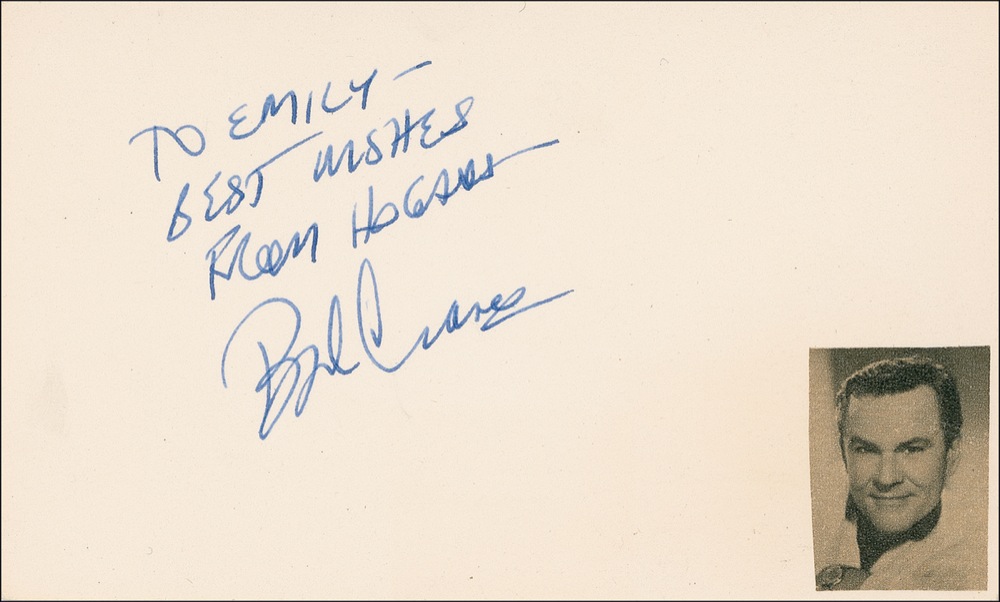 TO EMILY—
BEST WISHES
FROM HOGAN—
Bob Crane